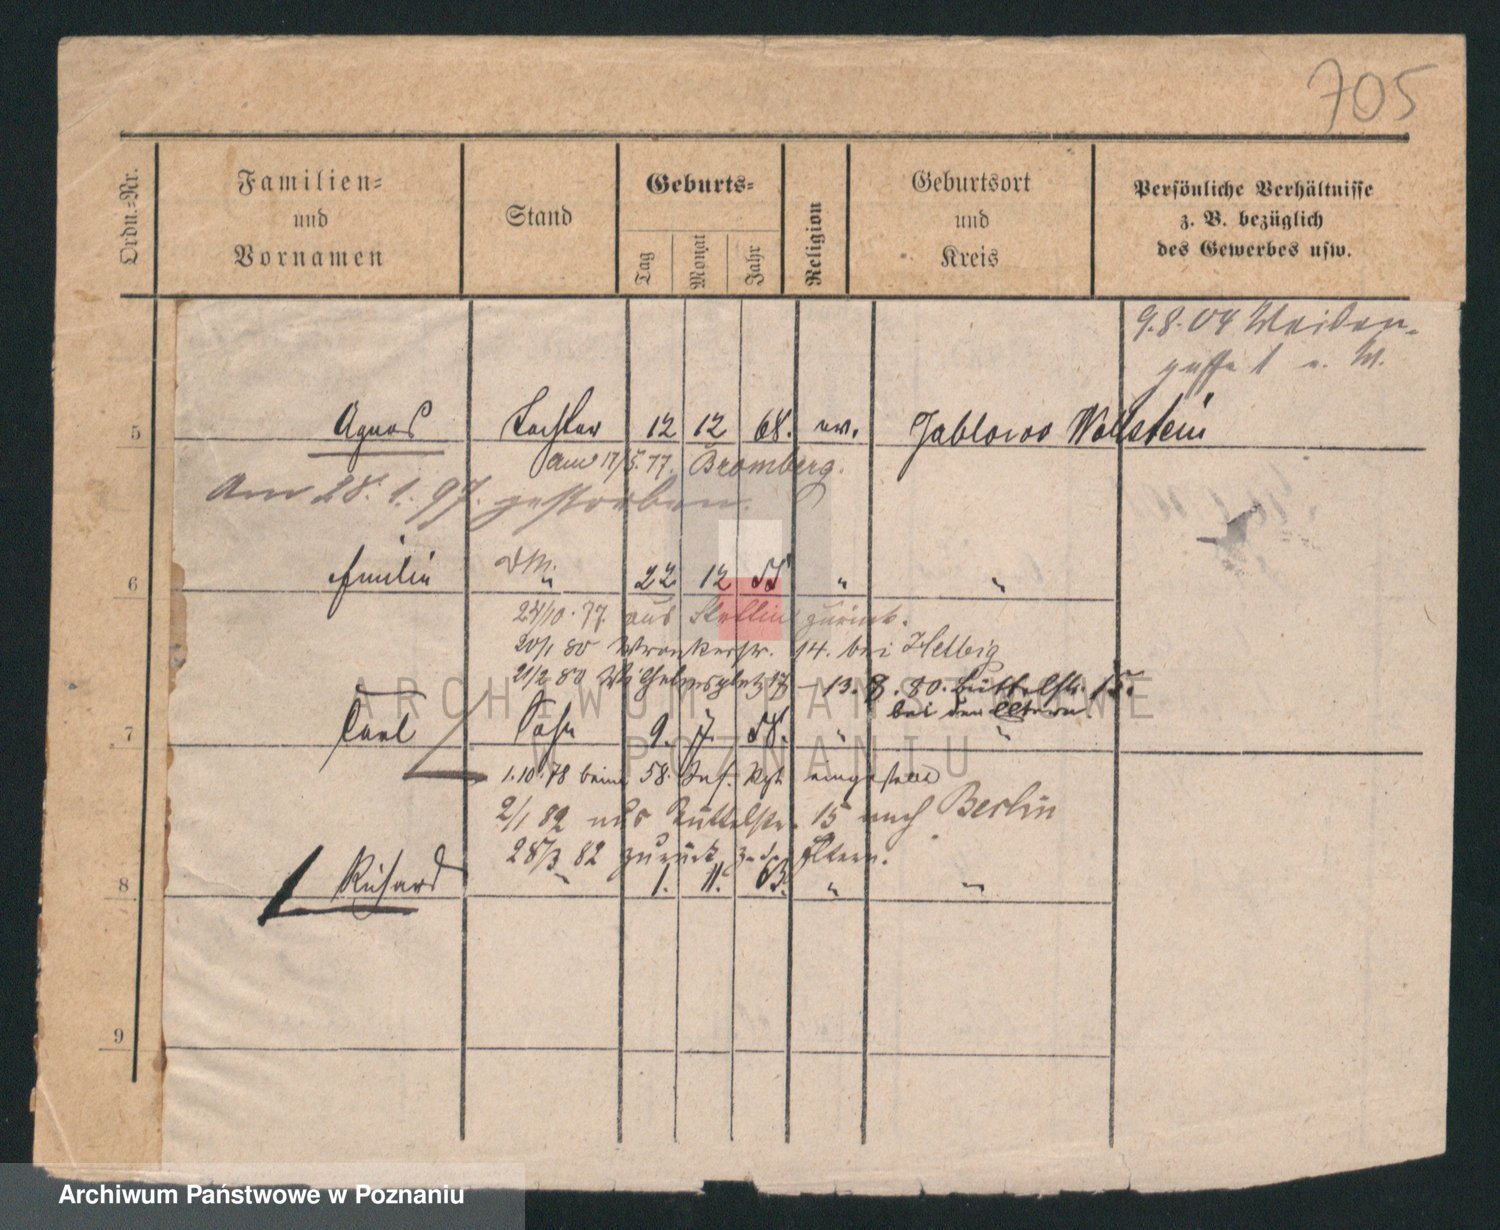 705
Ordn.-Nr.
Familien-
und
Vornamen
Stand
Geburts-
Tag
Monat
Jahr
Religion
Geburtsort
und
Kreis
Persönliche Verhältnisse
z. B. bezüglich
des Gewerbes usw.
9.8.04 Weiden-
gasse 1 a. W.
5 Agnes Tochter 12 12 68. ev. Jablowo Wollstein
Am 28. 1. 97. gestorben.
Bromberg.
6 Emilie " 22 12 " "
24/10. 77. aus Stettin zurück.
20/1 80 Wronkerstr. 14. bei Helbig
21/2 80 Wilhelmsplatz 17 - 13. 8. 80. Büttelstr. 15.
bei den Eltern
7 Carl Sohn 9. 7. 58. " "
1.10.78 beim 58. Inf. Rgt. eingestellt
2/1 82 aus Büttelstr. 15 nach Berlin
28/3 82 zurück z. d. Eltern.
8 Richard " 1. 11. 63. " "
9
ARCHIWUM PAŃSTWOWE
W POZNANIU
Archiwum Państwowe w Poznaniu